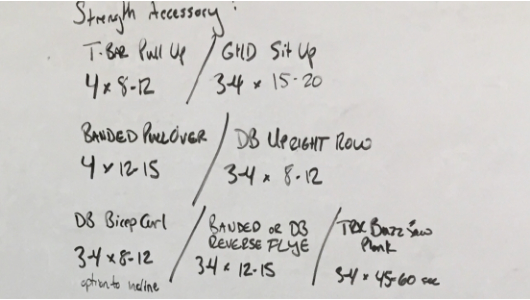 Strength Accessory:
T-Bar Pull Up / GHD Sit Up
4 x 8-12 3-4 x 15-20
Banded Pullover / DB Upright Row
4 x 12-15 3-4 x 8-12
DB Bicep Curl / Banded or DB Reverse Flye / TRX Buzz Saw Plank
3-4 x 8-12 3-4 x 12-15 3-4 x 45-60 sec
option to incline